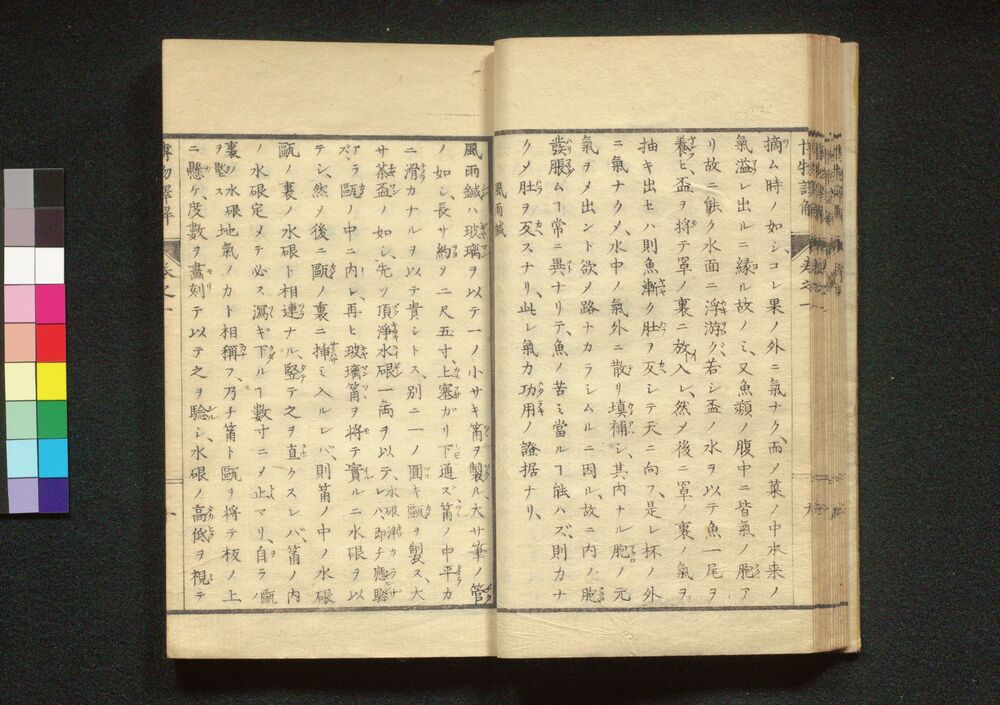 博物譯解
卷之一
摘ム時ノ如シ、コレ果ノ外ニ氣ナク、而ノ菓ノ中本来ノ
氣溢レ出ルニ縁ル故ノミ、又魚類ノ腹中ニ皆氣ノ胞ア
リ故ニ能ク水面ニ浮游ク若シ盃ノ水ヲ以テ魚一尾ヲ
養ヒ、盃ヲ将テ罩ノ裏ニ放入レ、然メ後ニ罩裏ノ氣ヲ
抽キ出セハ則魚漸ク肚ヲ反シテ天ニ向フ、是レ杯ノ外
ニ氣ナクメ、水中ノ氣外ニ散リ填補シ、其内ナル胞ノ元
氣ヲメ出ント欲ノ路ナカラシムルニ因ル、故ニ内ノ胞
發脹ムヿ常ニ異ナリテ、魚ノ苦ミ當ルヿ能ハズ、則カナ
クメ肚ヲ反スナリ、此レ氣力功用ノ證据ナリ、
風雨鍼
風雨鍼ハ玻璃ヲ以テ一ノ小サキ筩ヲ製ル、大サ筆ノ管
ノ如シ、長サ約ソ二尺五寸、上塞ガリ下通ズ、筩ノ中平カ
ニ滑カナルヲ以テ貴シトス、別ニ一ノ圓キ甌ヲ製ス、大
サ茶盃ノ如シ、先ツ頂淨水硍一両ヲ以テ、水硍淨カラザレハ即チ應驗
アラズ、甌ノ中ニ内レ、再ヒ玻璃筩ヲ将テ實ルニ水硍ヲ以
テシ、然メ後ニ甌ノ裏ニ挿ミ入ルレバ、則筩ノ中ノ水硍
甌ノ裏ノ水硍ト相連ナル、竪テ之ヲ直クスレバ、筩ノ内
ノ水硍定メテ必ス瀉ギ下ルヿ數寸ニメ止マリ、自ラ甌
裏ノ水硍地氣ノカト相稱フ、乃チ筩ト甌ヲ将テ板ノ上ヲ懸ス
ニ懸ケ、度數ヲ畫刻テ以テ之ヲ驗シ、水硍ノ高低ヲ視テ
博物譯解
卷之一